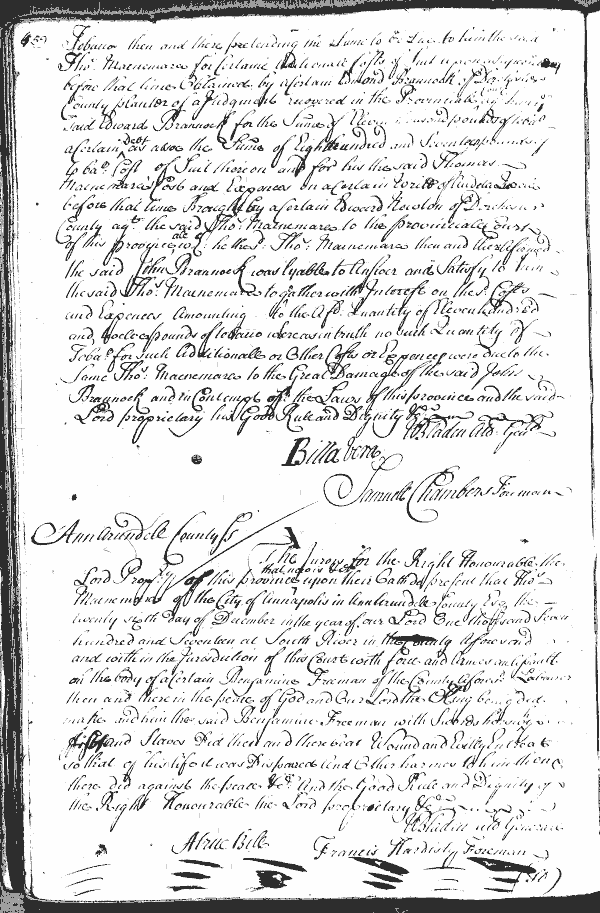 Tobacco then and there pretending the Sume to be due to him the said
Tho:s Macnemara for certaine additionall Costs of Suit upon
before that time obtained by a certain Edmond Brannock of Dorchester
County planter of a Judgment recovered in the Provinciall
said Edward Brannock for the Sume of Eleven thousand pounds of tobac
a certain debt as also the Sume of Eight hundred and Seventy pounds of
tobac:o Cost of Suit thereon and for his the said Thomas
Macnemara's Cost and Expences on a certain Writt of
before that time Brought by a certain Edward Newton of Dorchester
County ag:t the said Tho:s Macnemara to the provinciall Court
of this province w:ch he the s:d Tho:s Macnemara then and there affirmed
the said John Brannock was lyable to Answer and Satisfy to him
the said Tho:s Macnemara together with Interest on the s:d Costs
and Expences Amounting to the afs:d Quantity of Eleven hundred
and twelve pounds of tobacco whereas in truth no such Quantity of
Toba:o for such additionall or Other Costs or Expences were due to the
Same Tho:s Macnemara to the Great Damage of the said John
Brannock and in Contempt of the Laws of this province and the said
Lord proprietary his Good Rule and Dignity &c
WBladen Att:o Gen:ll
Billa vera
Samuell Chambers Foreman
Ann Arundell County ss
The Jurors for the Right Honourable the
Lord Prop:ry of this province upon their Oath do present that Tho:s
Macnemara of the City of Annapolis in Ann Arundell County Esq the
twenty sixth day of December in the year of our Lord One thousand Seven
hundred and Seventeen at South River in the County aforesaid
and within the Jurisdiction of this Court with force and armes an assault
on the body of a certain Benjamine Freeman of the County afores:d Labourer
then and there in the peace of God and Our Lord the King being did
make and him the said Benjamine Freeman with Swords
fists and Staves Did then and there beat Wound and Evilly Entreat
so that of his life it was Dispaired And Other harmes to him then &
there did against the peace &c And the Good Rule and Dignity of
the Right Honourable the Lord proprietary &c
WBladen Att:o Generall
A true Bill
Francis Hardisty Foreman